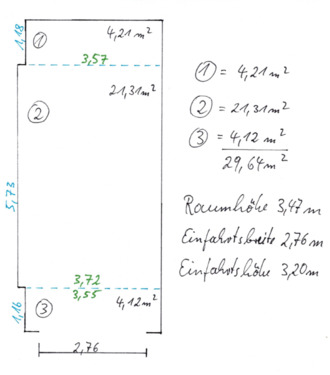 1,18
① 4,21 m²
3,57
21,31 m²
②
5,73
3,72
3,55
③ 4,12 m²
1,16
2,76
① = 4,21 m²
② = 21,31 m²
③ = 4,12 m²
29,64 m²
Raumhöhe 3,47 m
Einfahrtsbreite 2,76 m
Einfahrtshöhe 3,20 m